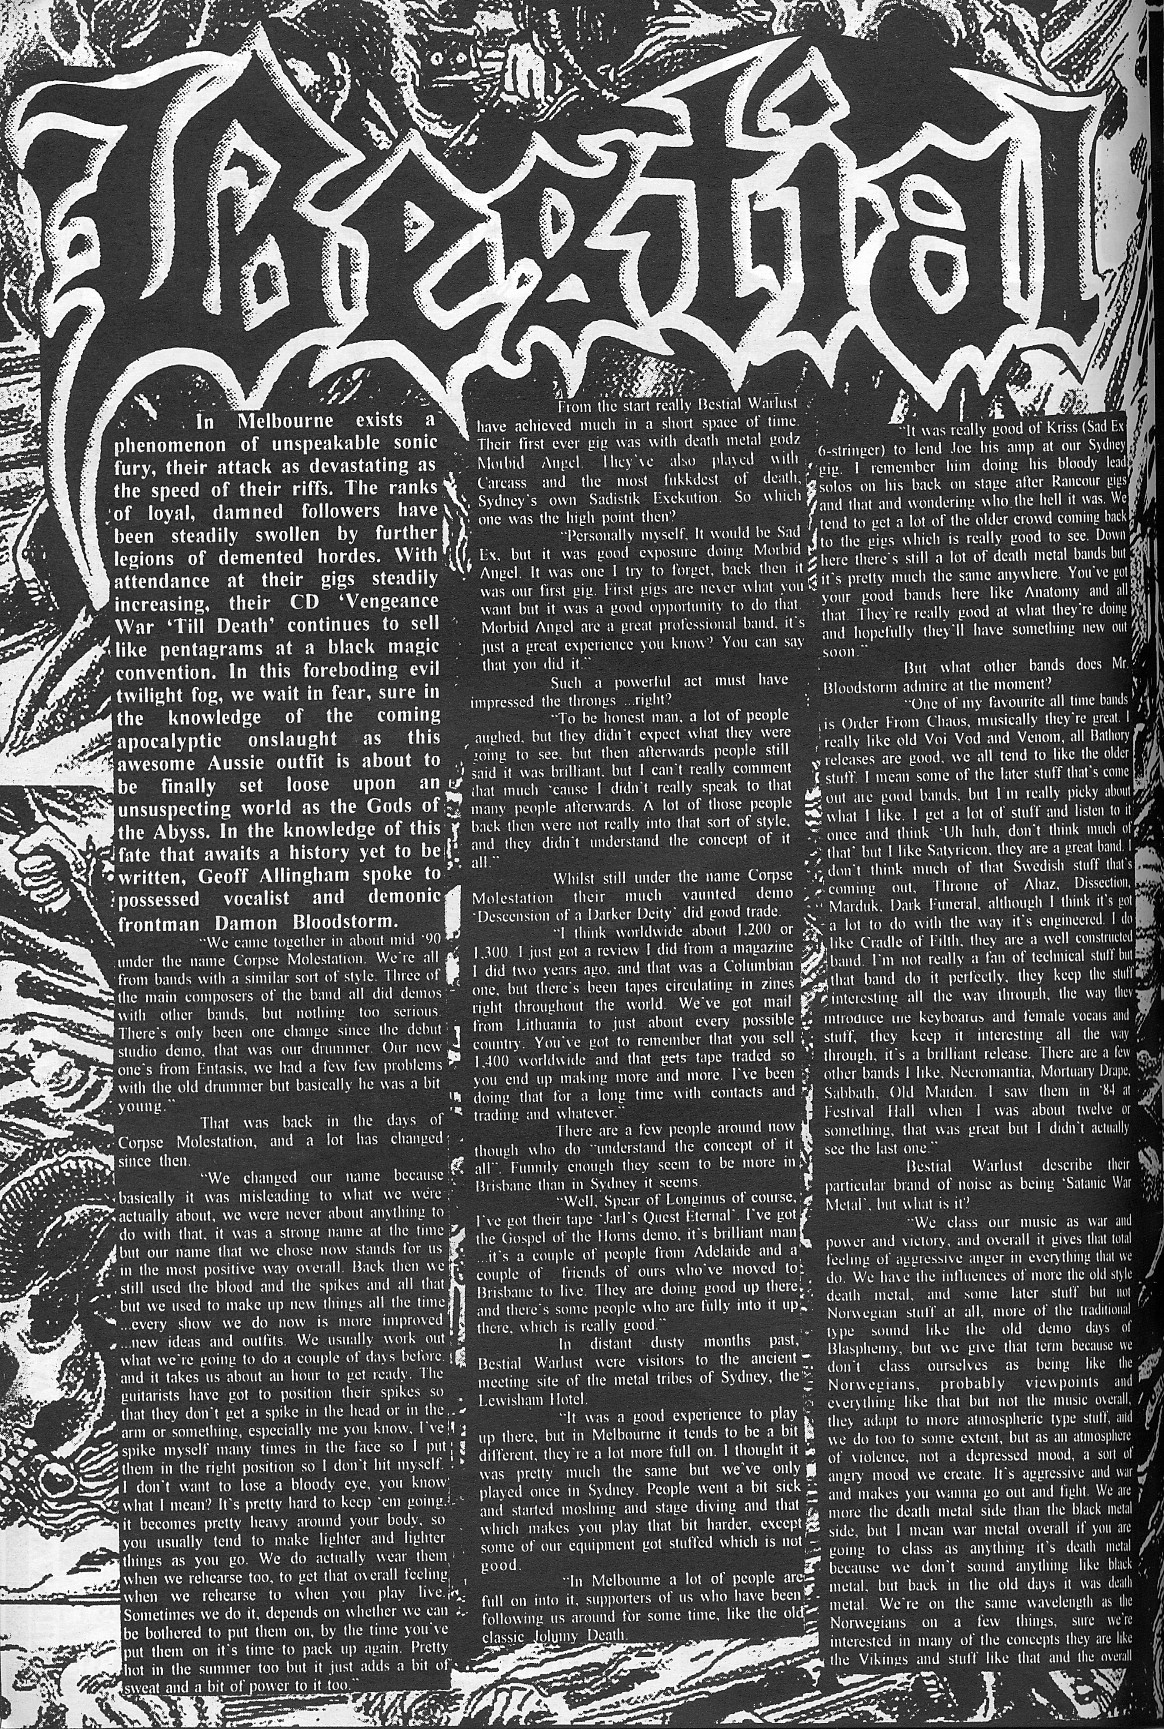 Bestial
In Melbourne exists a
phenomenon of unspeakable sonic
fury, their attack as devastating as
the speed of their riffs. The ranks
of loyal, damned followers have
been steadily swollen by further
legions of demented hordes. With
attendance at their gigs steadily
increasing, their CD ‘Vengeance
War ‘Till Death’ continues to sell
like pentagrams at a black magic
convention. In this foreboding evil
twilight fog, we wait in fear, sure in
the knowledge of the coming
apocalyptic onslaught as this
awesome Aussie outfit is about to
be finally set loose upon an
unsuspecting world as the Gods of
the Abyss. In the knowledge of this
fate that awaits a history yet to be
written, Geoff Allingham spoke to
possessed vocalist and demonic
frontman Damon Bloodstorm.
“We came together in about mid ‘90
under the name Corpse Molestation. We’re all
from bands with a similar sort of style. Three of
the main composers of the band all did demos
with other bands, but nothing too serious.
There’s only been one change since the debut
studio demo, that was our drummer. Our new
one’s from Entasis, we had a few few problems
with the old drummer but basically he was a bit
young.”
That was back in the days of
Corpse Molestation, and a lot has changed
since then.
“We changed our name because
basically it was misleading to what we were
actually about, we were never about anything to
do with that, it was a strong name at the time
but our name that we chose now stands for us
in the most positive way overall. Back then we
still used the blood and the spikes and all that
but we used to make up new things all the time
...every show we do now is more improved
...new ideas and outfits. We usually work out
what we’re going to do a couple of days before,
and it takes us about an hour to get ready. The
guitarists have got to position their spikes so
that they don’t get a spike in the head or in the
arm or something, especially me you know, I’ve
spike myself many times in the face so I put
them in the right position so I don’t hit myself.
I don’t want to lose a bloody eye, you know
what I mean? It’s pretty hard to keep ‘em going,
it becomes pretty heavy around your body, so
you usually tend to make lighter and lighter
things as you go. We do actually wear them
when we rehearse too, to get that overall feeling
when we rehearse to when you play live.
Sometimes we do it, depends on whether we can
be bothered to put them on, by the time you’ve
put them on it’s time to pack up again. Pretty
hot in the summer too but it just adds a bit of
sweat and a bit of power to it too.”
From the start really Bestial Warlust
have achieved much in a short space of time.
Their first ever gig was with death metal godz
Morbid Angel. They’ve also played with
Carcass and the most fukkdest of death,
Sydney’s own Sadistik Exekution. So which
one was the high point then?
“Personally myself, It would be Sad
Ex, but it was good exposure doing Morbid
Angel. It was one I try to forget, back then it
was our first gig. First gigs are never what you
want but it was a good opportunity to do that.
Morbid Angel are a great professional band, it’s
just a great experience you know? You can say
that you did it.”
Such a powerful act must have
impressed the throngs ...right?
“To be honest man, a lot of people
aughed, but they didn’t expect what they were
going to see, but then afterwards people still
said it was brilliant, but I can’t really comment
that much ‘cause I didn’t really speak to that
many people afterwards. A lot of those people
back then were not really into that sort of style,
and they didn’t understand the concept of it
all.”
Whilst still under the name Corpse
Molestation their much vaunted demo
‘Descension of a Darker Deity’ did good trade.
“I think worldwide about 1,200 or
1,300. I just got a review I did from a magazine
I did two years ago, and that was a Columbian
one, but there’s been tapes circulating in zines
right throughout the world. We’ve got mail
from Lithuania to just about every possible
country. You’ve got to remember that you sell
1,400 worldwide and that gets tape traded so
you end up making more and more. I’ve been
doing that for a long time with contacts and
trading and whatever.”
There are a few people around now
though who do “understand the concept of it
all”. Funnily enough they seem to be more in
Brisbane than in Sydney it seems.
“Well, Spear of Longinus of course,
I’ve got their tape ‘Jarl’s Quest Eternal’. I’ve got
the Gospel of the Horns demo, it’s brilliant man
...it’s a couple of people from Adelaide and a
couple of friends of ours who’ve moved to
Brisbane to live. They are doing good up there
and there’s some people who are fully into it up
there, which is really good.”
In distant dusty months past,
Bestial Warlust were visitors to the ancient
meeting site of the metal tribes of Sydney, the
Lewisham Hotel.
“It was a good experience to play
up there, but in Melbourne it tends to be a bit
different, they’re a lot more full on. I thought it
was pretty much the same but we’ve only
played once in Sydney. People went a bit sick
and started moshing and stage diving and that
which makes you play that bit harder, except
some of our equipment got stuffed which is not
good.
“In Melbourne a lot of people are
full on into it, supporters of us who have been
following us around for some time, like the old
classic Johnny Death.
“It was really good of Kriss (Sad Ex
6-stringer) to lend Joe his amp at our Sydney
gig. I remember him doing his bloody lead
solos on his back on stage after Rancour gigs
and that and wondering who the hell it was. We
tend to get a lot of the older crowd coming back
to the gigs which is really good to see. Down
here there’s still a lot of death metal bands but
it’s pretty much the same anywhere. You’ve got
your good bands here like Anatomy and all
that. They’re really good at what they’re doing
and hopefully they’ll have something new out
soon.”
But what other bands does Mr.
Bloodstorm admire at the moment?
“One of my favourite all time bands
is Order From Chaos, musically they’re great. I
really like old Voi Vod and Venom, all Bathory
releases are good, we all tend to like the older
stuff. I mean some of the later stuff that’s come
out are good bands, but I’m really picky about
what I like. I get a lot of stuff and listen to it
once and think ‘Uh huh, don’t think much of
that’ but I like Satyricon, they are a great band. I
don’t think much of that Swedish stuff that’s
coming out, Throne of Ahaz, Dissection,
Marduk, Dark Funeral, although I think it’s got
a lot to do with the way it’s engineered. I do
like Cradle of Filth, they are a well constructed
band. I’m not really a fan of technical stuff but
that band do it perfectly, they keep the stuff
interesting all the way through, the way they
introduce the keyboards and female vocals and
stuff, they keep it interesting all the way
through, it’s a brilliant release. There are a few
other bands I like, Necromantia, Mortuary Drape,
Sabbath, Old Maiden. I saw them in ‘84 at
Festival Hall when I was about twelve or
something, that was great but I didn’t actually
see the last one.”
Bestial Warlust describe their
particular brand of noise as being ‘Satanic War
Metal’, but what is it?
“We class our music as war and
power and victory, and overall it gives that total
feeling of aggressive anger in everything that we
do. We have the influences of more the old style
death metal, and some later stuff but not
Norwegian stuff at all, more of the traditional
type sound like the old demo days of
Blasphemy, but we give that term because we
don’t class ourselves as being like the
Norwegians, probably viewpoints and
everything like that but not the music overall,
they adapt to more atmospheric type stuff, and
we do too to some extent, but as an atmosphere
of violence, not a depressed mood, a sort of
angry mood we create. It’s aggressive and war
and makes you wanna go out and fight. We are
more the death metal side than the black metal
side, but I mean war metal overall if you are
going to class as anything it’s death metal
because we don’t sound anything like black
metal, but back in the old days it was death
metal. We’re on the same wavelength as the
Norwegians on a few things, sure we’re
interested in many of the concepts they are like
the Vikings and stuff like that and the overall